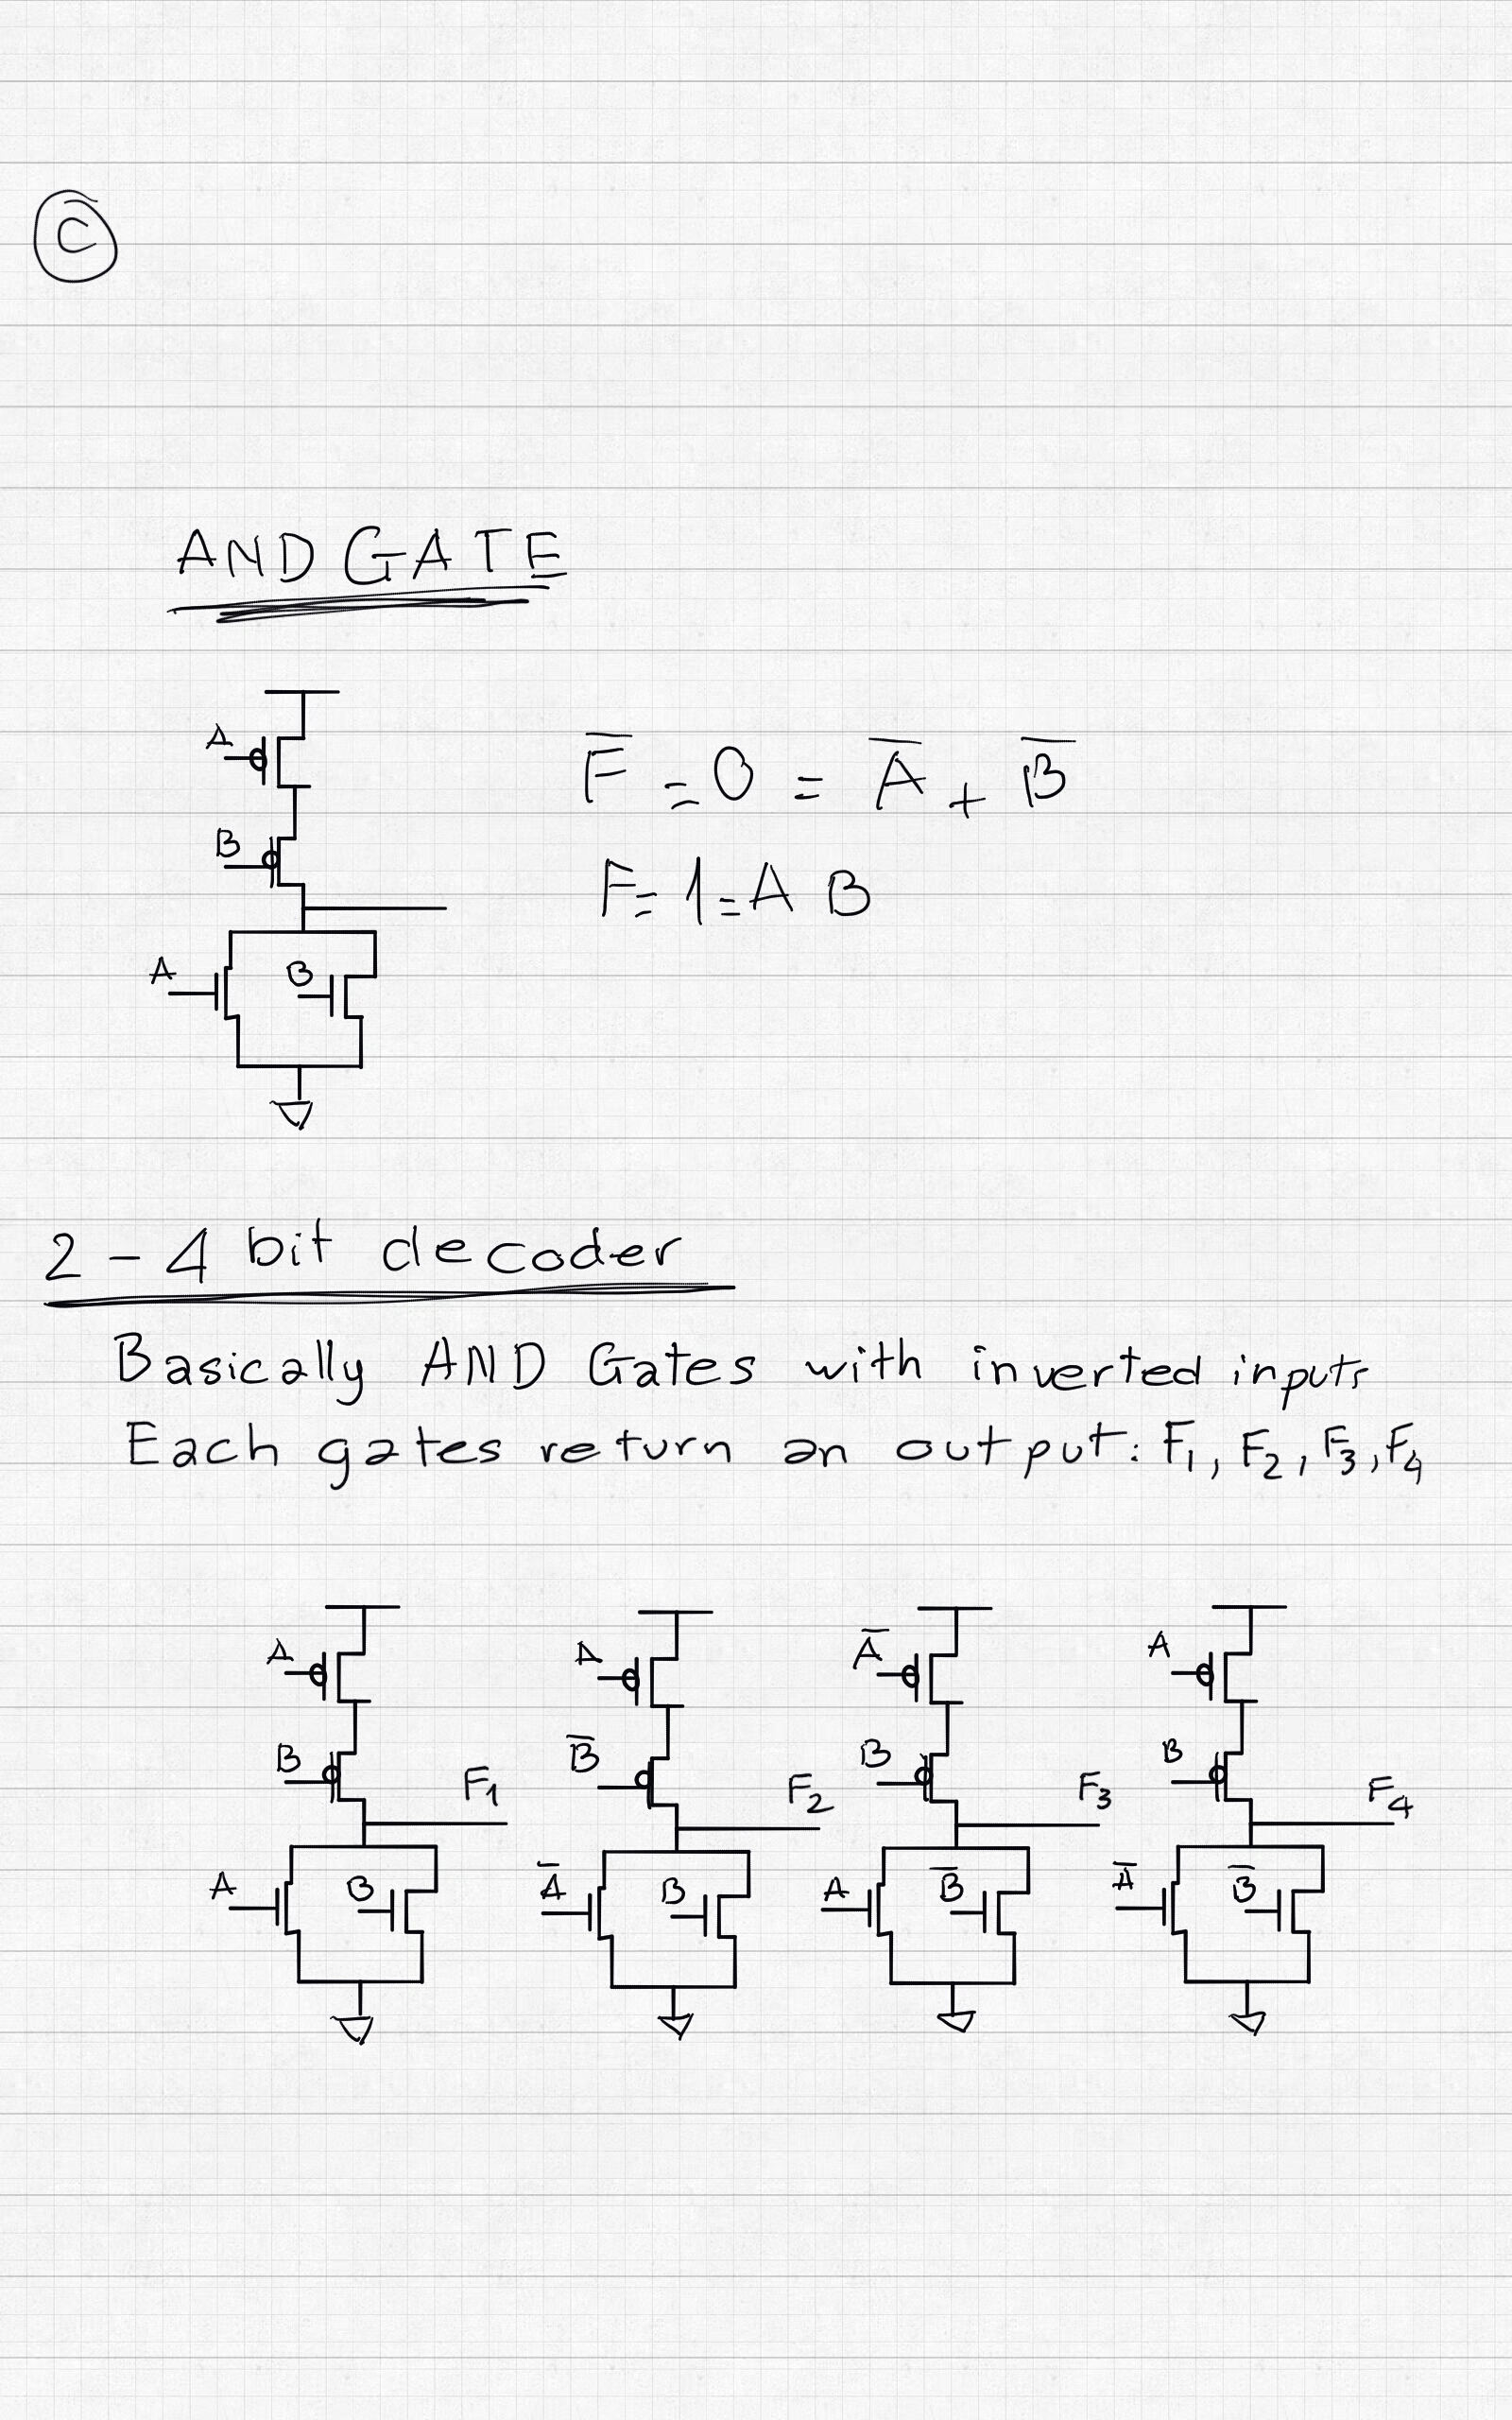 C
AND GATE
A
F̅ = 0 = A̅ + B̅
B
F = 1 = A B
A B
2 - 4 bit decoder
Basically AND Gates with inverted inputs
Each gates return an output: F₁, F₂, F₃, F₄
A A A̅ A
B F₁ B̅ F₂ B F₃ B F₄
A B A̅ B A B̅ A̅ B̅